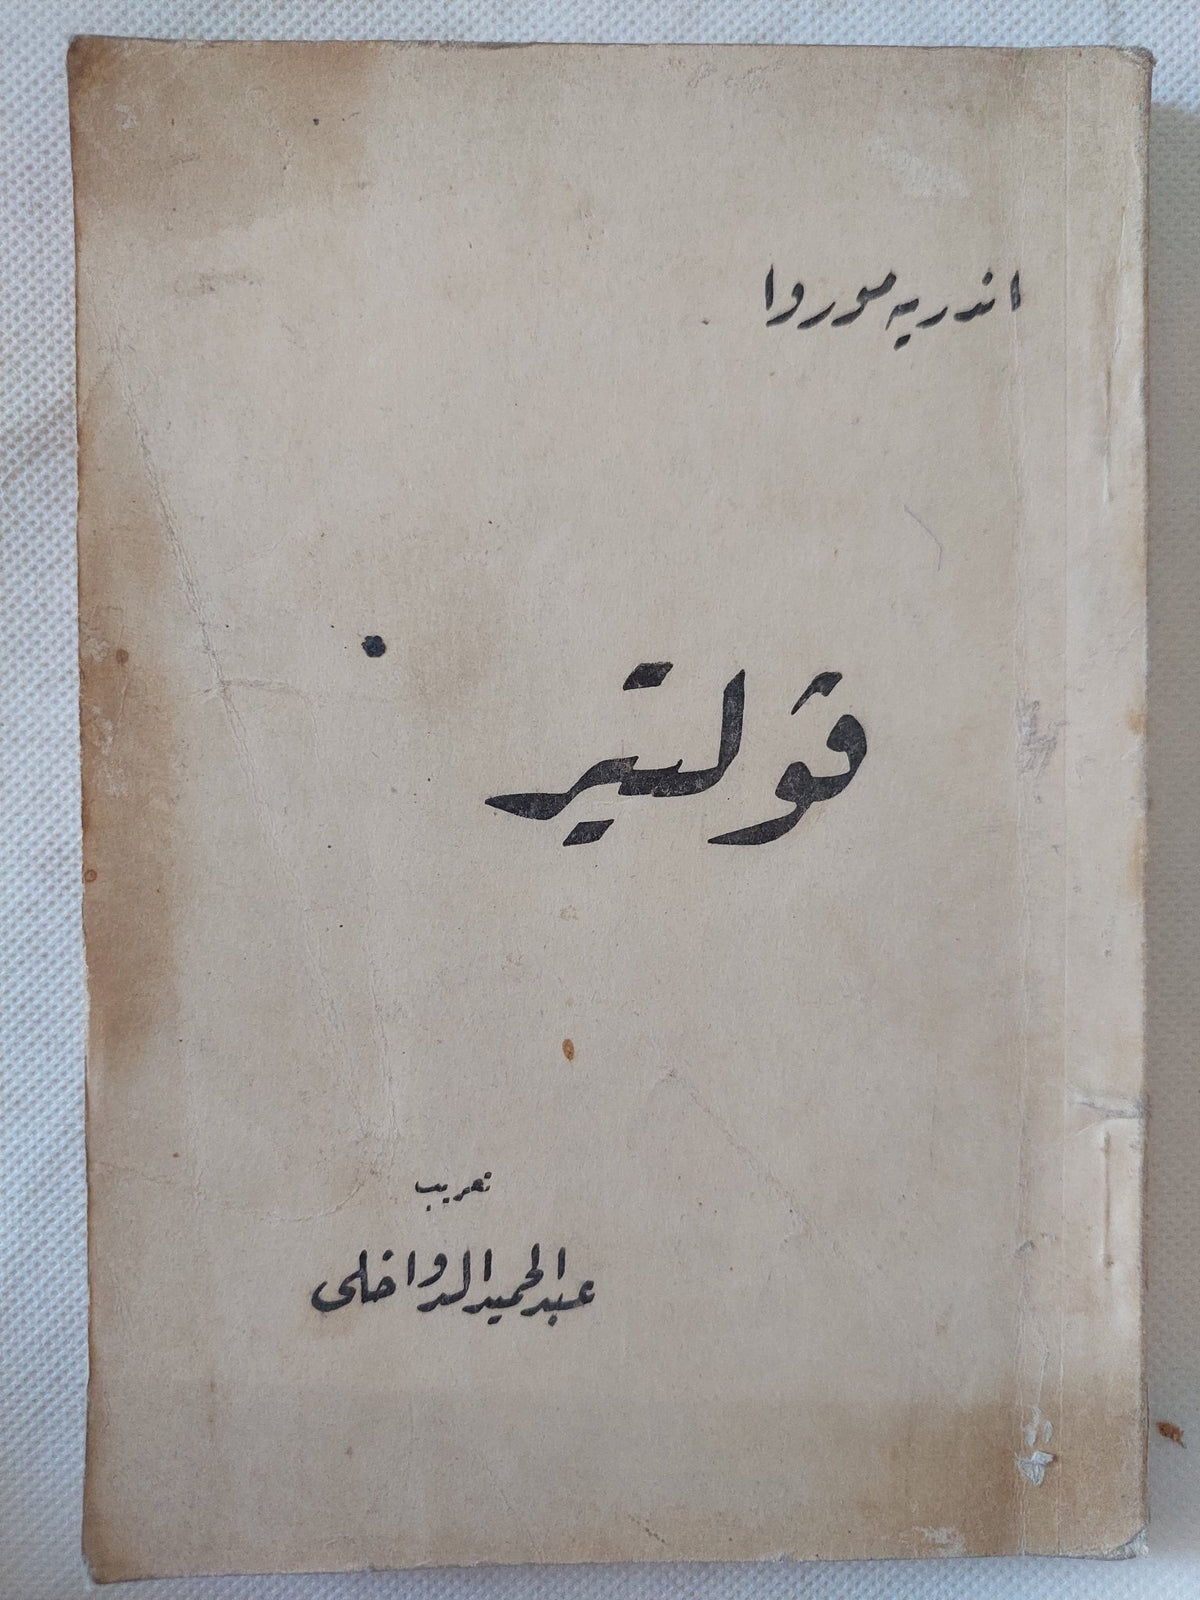 اندريه موروا
ڤولتير
تعريب
عبد الحميد الدواخلى